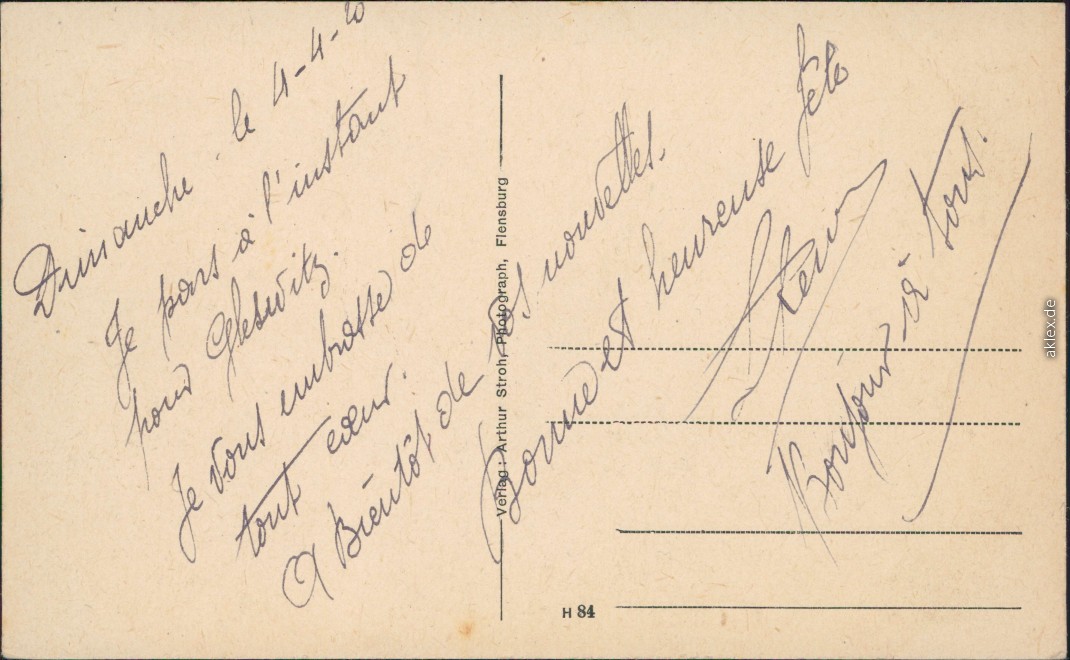 Dimanche le 4-4-20
Je pars à l'instant
pour Gleiwitz.
Je vous embrasse de
tout cœur.
A Bientôt de vos nouvelles.
Bonne et heureuse fête
Bonjour à tous.
Verlag: Arthur Stroh, Photograph, Flensburg
H 84
aklex.de